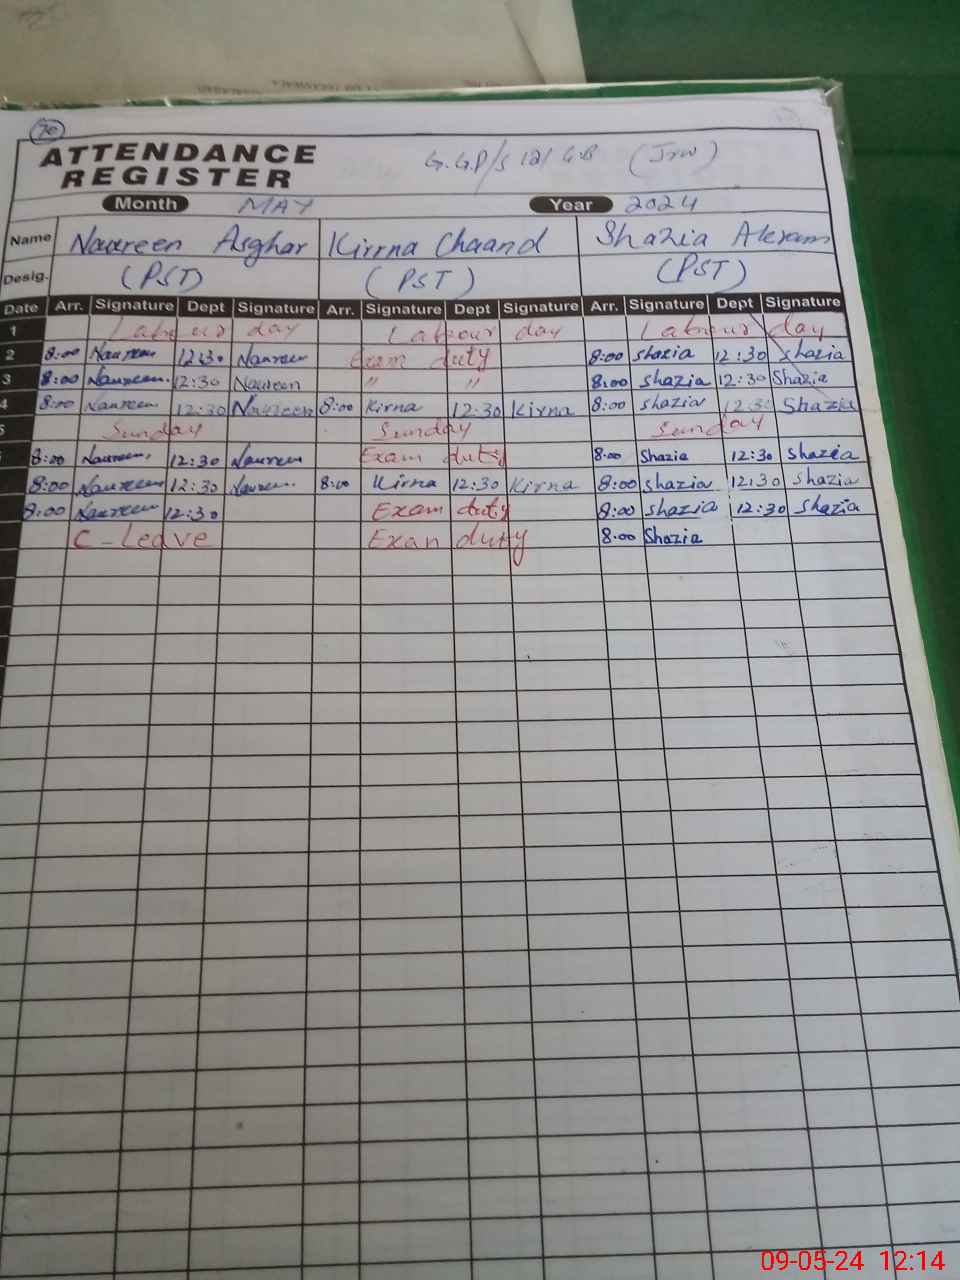 70
ATTENDANCE G.GP/S 121 G.B (Jrw)
REGISTER
Month MAY Year 2024
Name Naureen Asghar Kirrna Chaand Shazia Akram
Desig. (PST) (PST) (PST)
Date Arr. Signature Dept Signature Arr. Signature Dept Signature Arr. Signature Dept Signature
1 Labour day Labour day Labour day
2 8:00 Naureen 12:30 Naureen Exam duty 8:00 shazia 12:30 shazia
3 8:00 Naureen. 12:30 Naureen " " 8:00 shazia 12:30 Shazia
4 8:00 Naureen 12:30 Naureen 8:00 Kirna 12:30 Kirna 8:00 shazia 12:30 Shazia
5 Sunday Sunday Sunday
8:00 Naureen. 12:30 Naureen Exam duty 8:00 Shazia 12:30 shazia
8:00 Naureen 12:30 Naureen. 8:00 Kirna 12:30 Kirna 8:00 shazia 12:30 shazia
8:00 Naureen 12:30 Exam duty 8:00 shazia 12:30 shazia
C-Leave Exan duty 8:00 Shazia
09-05-24 12:14